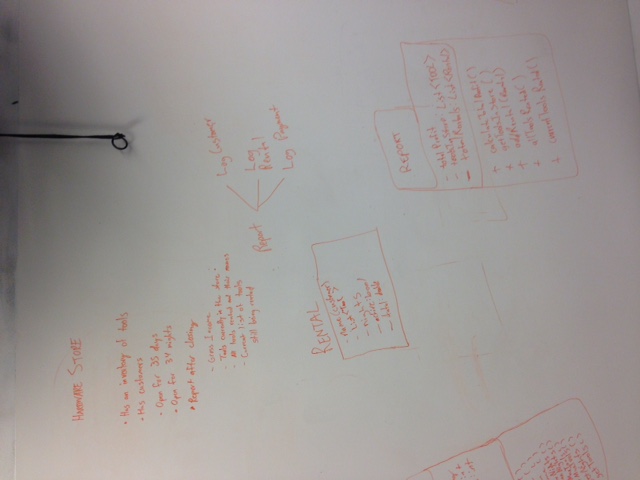 HARDWARE STORE
• Has an inventory of tools
• Has customers
• Open for 35 days
• Open for 34 nights
* Report after closing
- Gross Income
- Tools currently in the store
- All tools rented and their names
- Current list of tools
still being rented
Report
Log Customer
Log
Rental
Log Payment
RENTAL
- name (customer)
- List<Tool>
- nights
- active: bool
- total: double
REPORT
- totalProfit
- toolsInStore: List<TOOL>
- totalRentals: List<Rental>
+ calculateTotalProfit()
+ getToolsInStore()
+ addRental(Rental)
+ allToolsRented()
+ currentToolsRented()